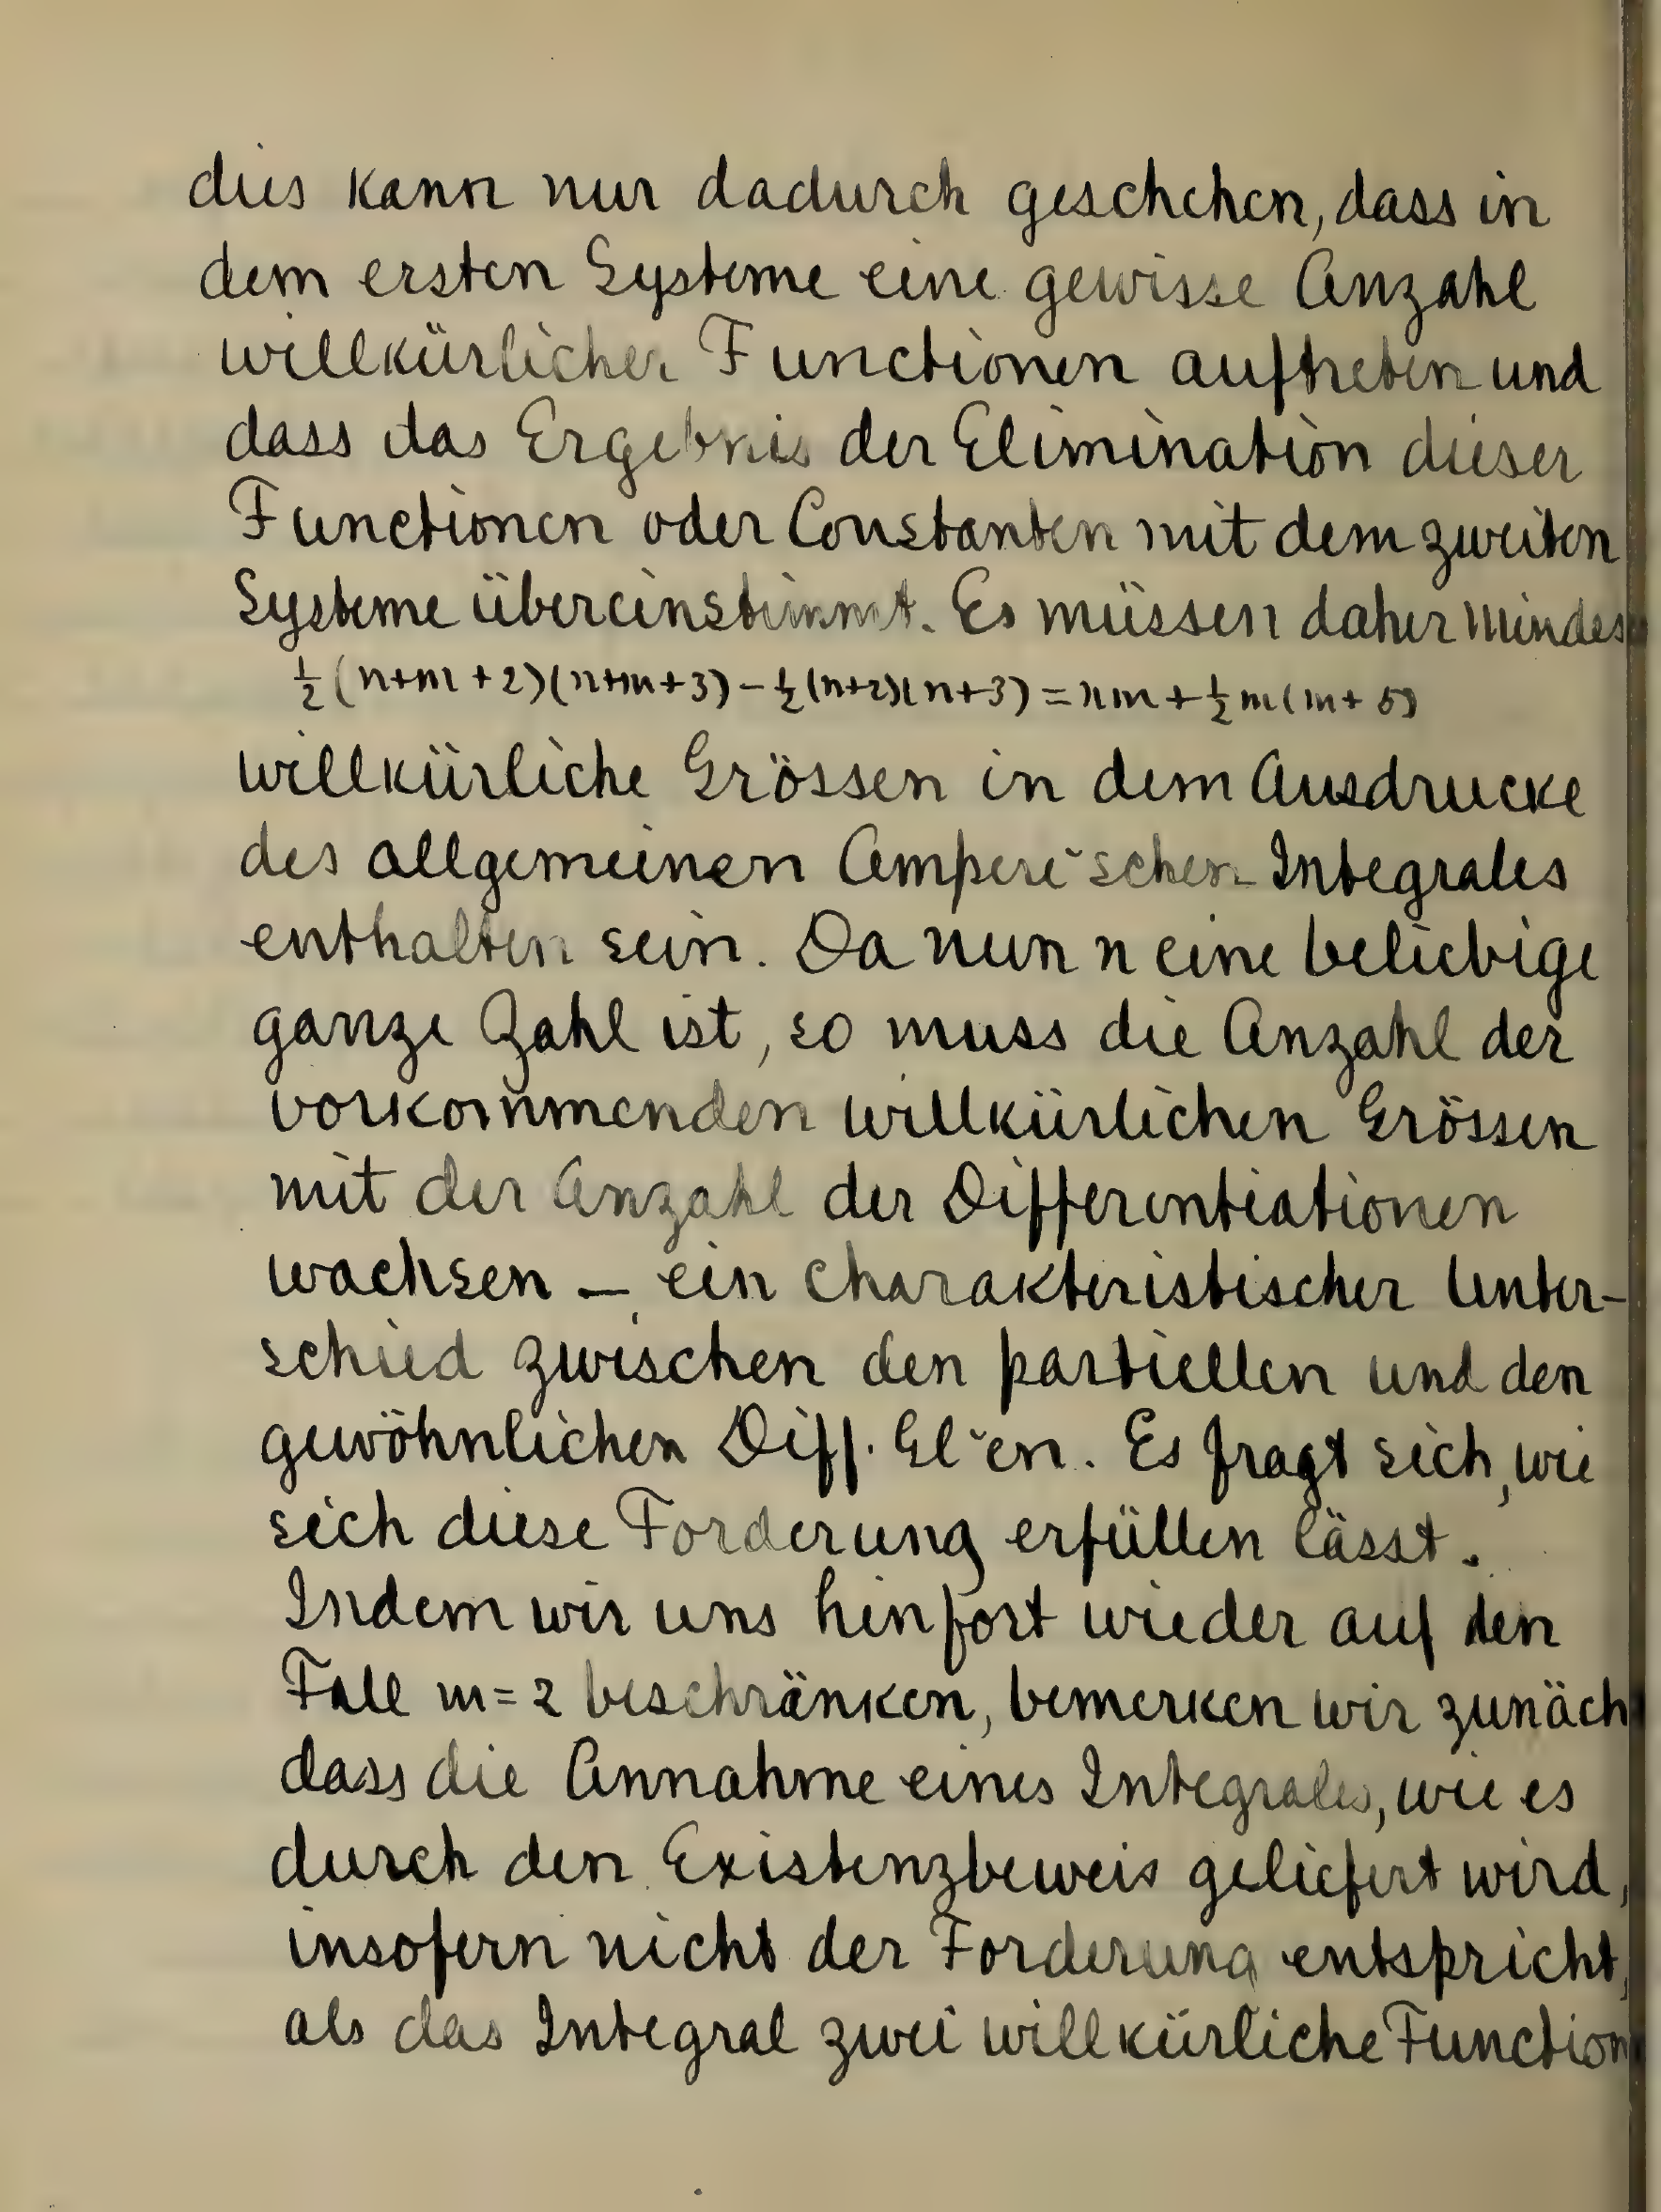 dies kann nur dadurch geschehen, dass in
dem ersten Systeme eine gewisse Anzahl
willkürlicher Functionen auftreten und
dass das Ergebnis der Elimination dieser
Functionen oder Constanten mit dem zweiten
Systeme übereinstimmt. Es müssen daher mindes
½(n+m+2)(n+m+3)-½(n+2)(n+3)=nm+½m(m+5)
willkürliche Grössen in dem Ausdrucke
des allgemeinen Ampere'schen Integrales
enthalten sein. Da nun n eine beliebige
ganze Zahl ist, so muss die Anzahl der
vorkommenden willkürlichen Grössen
mit der Anzahl der Differentiationen
wachsen – ein charakteristischer Unter-
schied zwischen den partiellen und den
gewöhnlichen Diff. Gl~en. Es fragt sich, wie
sich diese Forderung erfüllen lässt.
Indem wir uns hinfort wieder auf den
Fall m=2 beschränken, bemerken wir zunäch
dass die Annahme eines Integrales, wie es
durch den Existenzbeweis geliefert wird,
insofern nicht der Forderung entspricht,
als das Integral zwei willkürliche Function